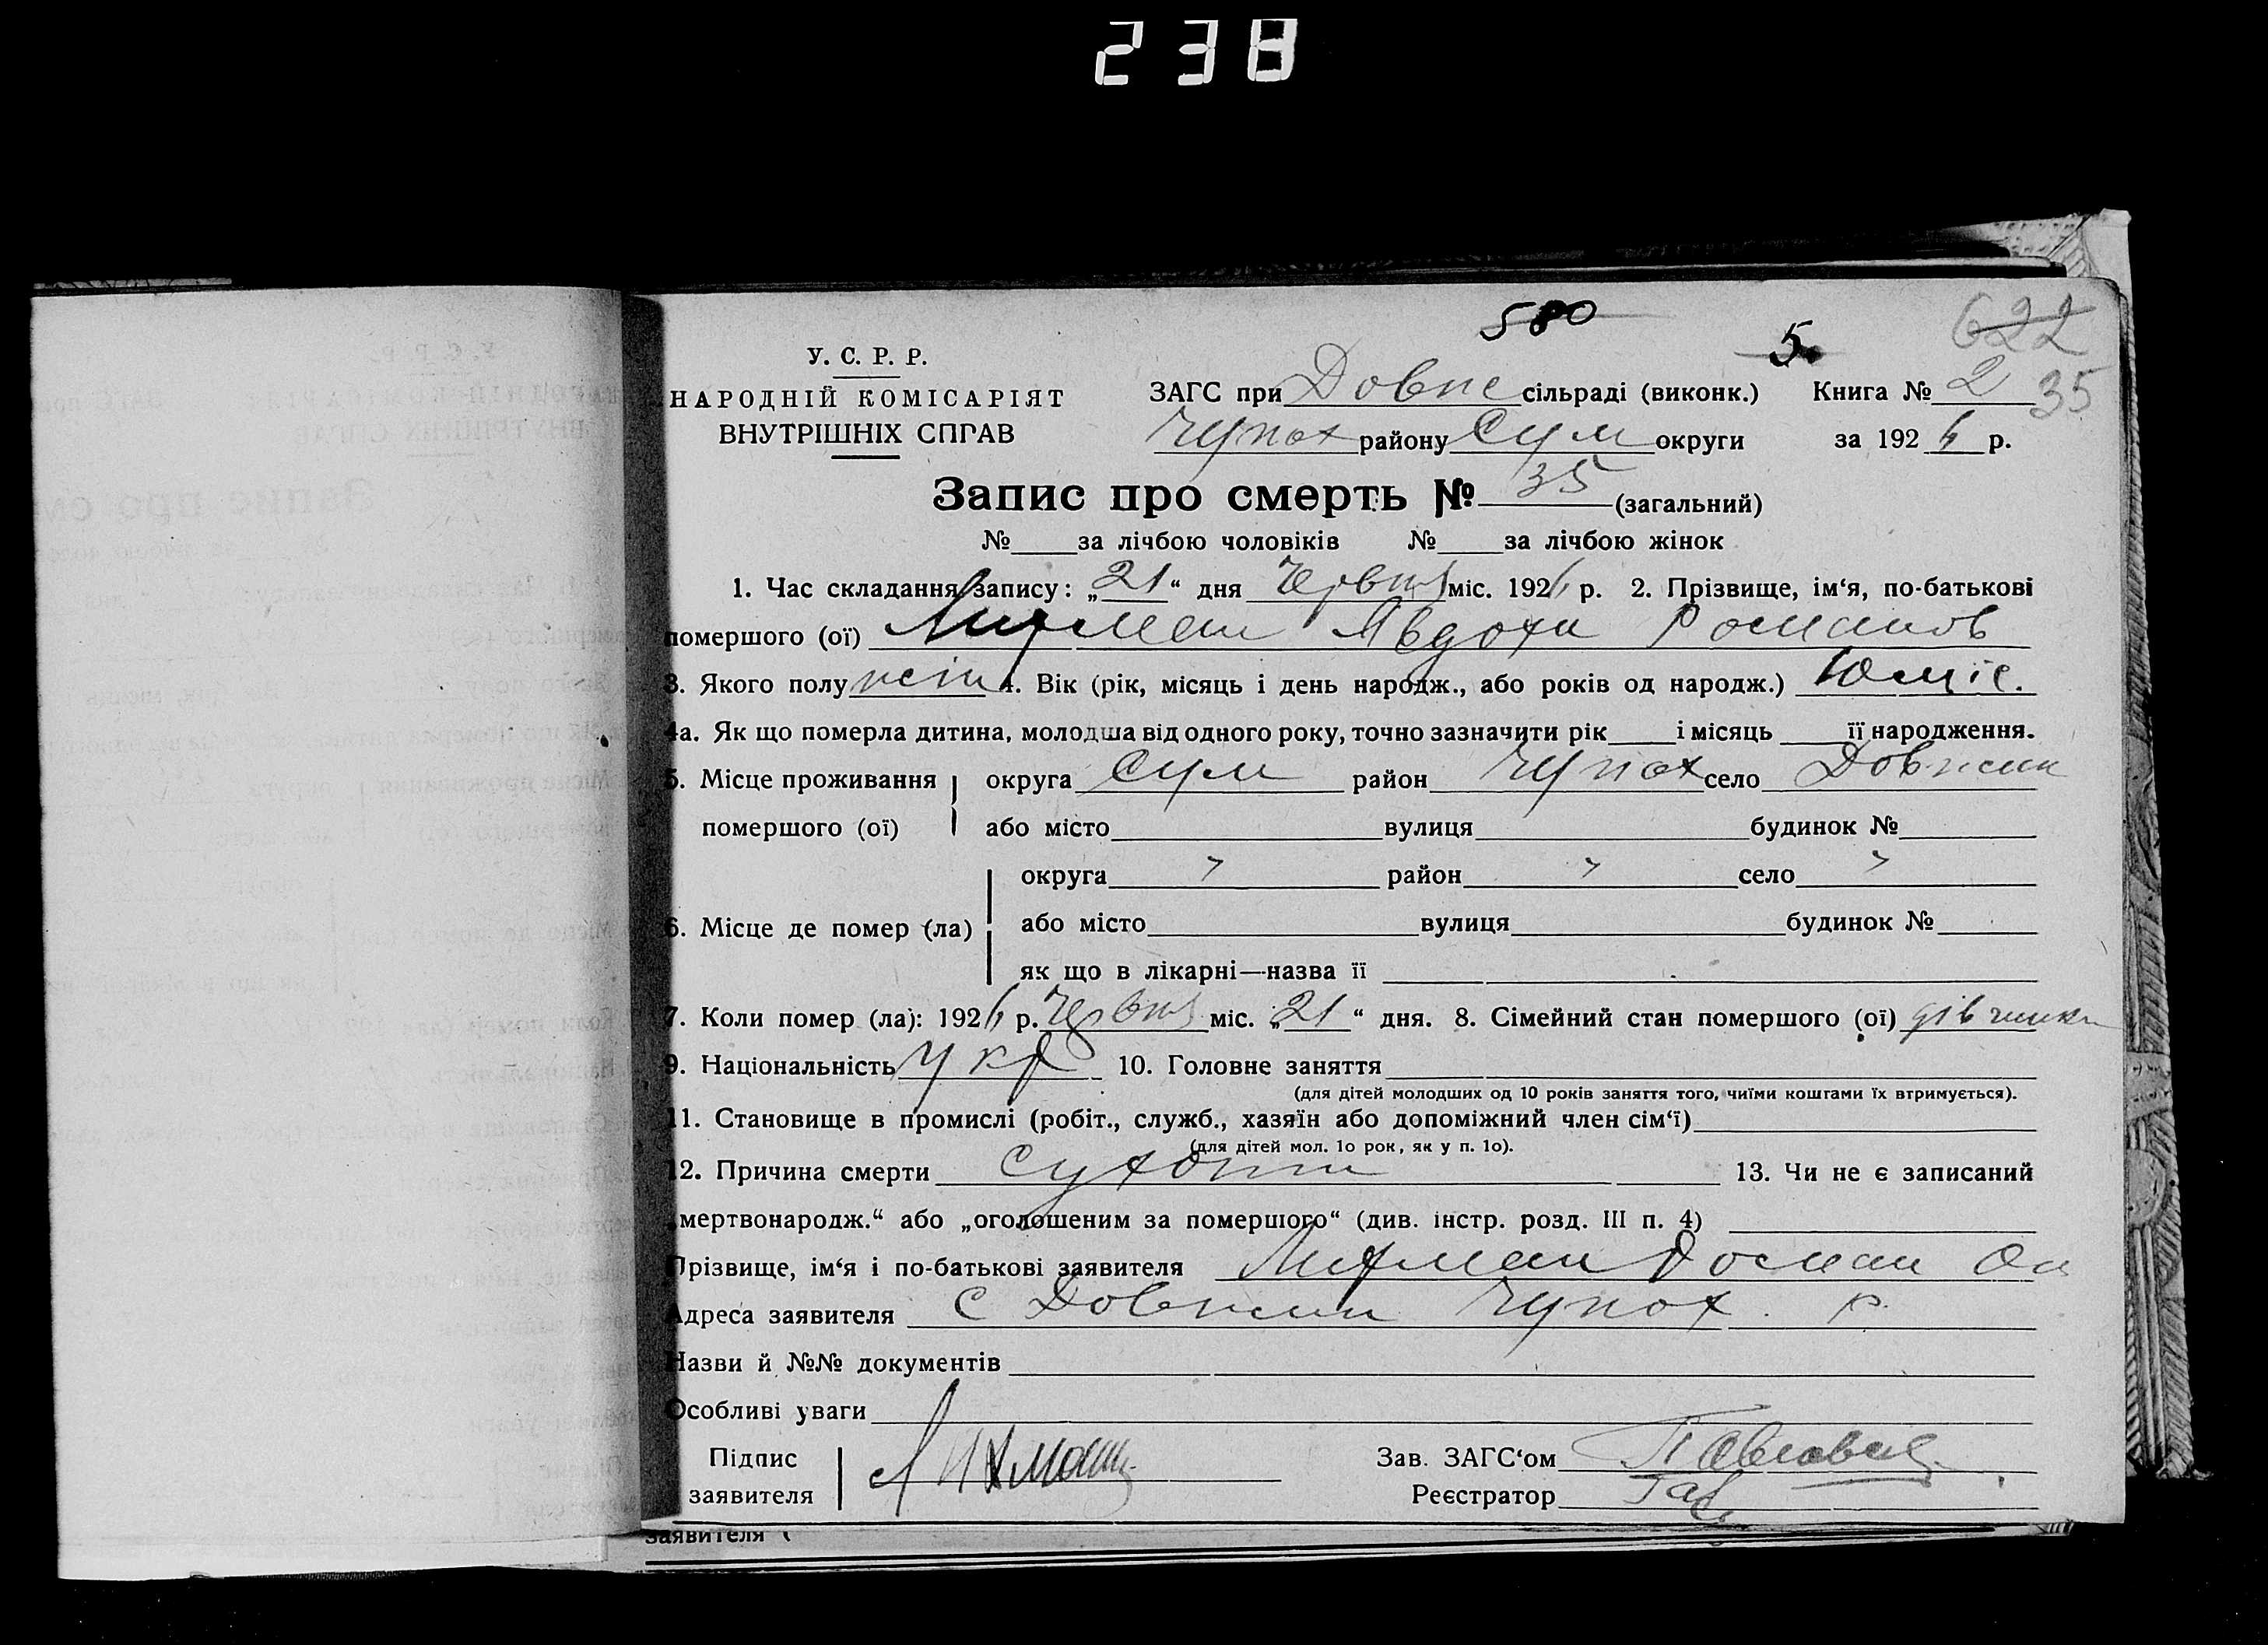 238
580
5.
622
У. С. Р. Р.
НАРОДНІЙ КОМІСАРІЯТ
ВНУТРІШНІХ СПРАВ
ЗАГС при Довж сільраді (виконк.) Книга № 2 35
Чупах району Сум округи за 1926 р.
Запис про смерть № 35 (загальний)
№ за лічбою чоловіків № за лічбою жінок
1. Час складання запису: „21“ дня Червня міс. 1926 р. 2. Прізвище, ім‘я, по-батькові
помершого (ої) Лихман Явдоха Романов
3. Якого полу жін 4. Вік (рік, місяць і день народж., або років од народж.) 10 міс.
4а. Як що померла дитина, молодша від одного року, точно зазначити рік і місяць її народження.
5. Місце проживання округа Сум район Чупах село Довжик
помершого (ої) або місто вулиця будинок №
округа " район " село "
6. Місце де помер (ла) або місто вулиця будинок №
як що в лікарні—назва її
7. Коли помер (ла): 1926 р. Червня міс. „21“ дня. 8. Сімейний стан помершого (ої) дівчинка
9. Національність Укр 10. Головне заняття
(для дітей молодших од 10 років заняття того, чиїми коштами їх втримується).
11. Становище в промислі (робіт., служб., хазяїн або допоміжний член сім‘ї)
(для дітей мол. 1о рок, як у п. 1о).
12. Причина смерти Сухоти 13. Чи не є записаний
„мертвонародж.“ або „оголошеним за помершого“ (див. інстр. розд. III п. 4)
Прізвище, ім‘я і по-батькові заявителя Лихман Роман
Адреса заявителя с Довжик Чупах. р.
Назви й №№ документів
Особливі уваги
Підпис
заявителя Лихман
Зав. ЗАГС‘ом
Реєстратор
заявителя